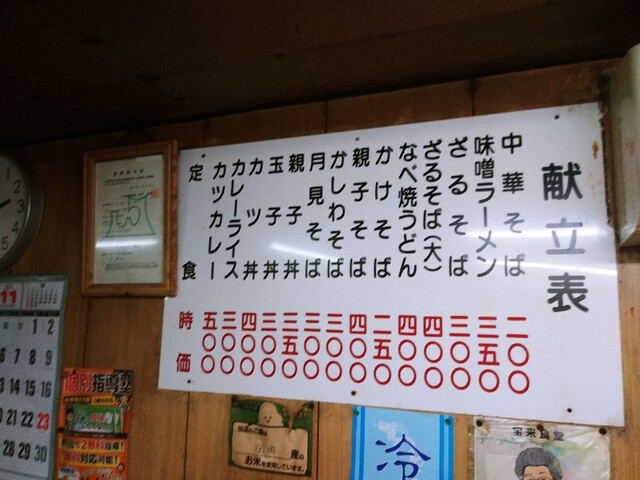 献立表
中華そば 二〇〇
味噌ラーメン 三五〇
ざるそば 三〇〇
ざるそば(大) 四〇〇
なべ焼うどん 四〇〇
かけそば 二五〇
親子そば 四〇〇
かしわそば 三〇〇
月見そば 三〇〇
親子丼 三五〇
玉子丼 三〇〇
カツ丼 四〇〇
カレーライス 三〇〇
カツカレー 五〇〇
定食 時価
1
2
3
4
5
11
1 2
6 7 8 9
13 14 15 16
20 21 22 23
28 29 30
個別指導塾
対応可能!
お米を使用しています。
冷
宝来食堂